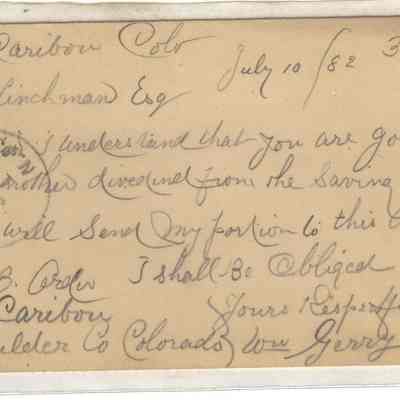 Caribou Colo
July 10 / 82
linchman Esq
I understand that you are go
nother divedind from the Saving
will Send My portion to this
B. Order I shall Be Obliged
Caribou Yours Respectf
ulder Co Colorado Wm Gerry